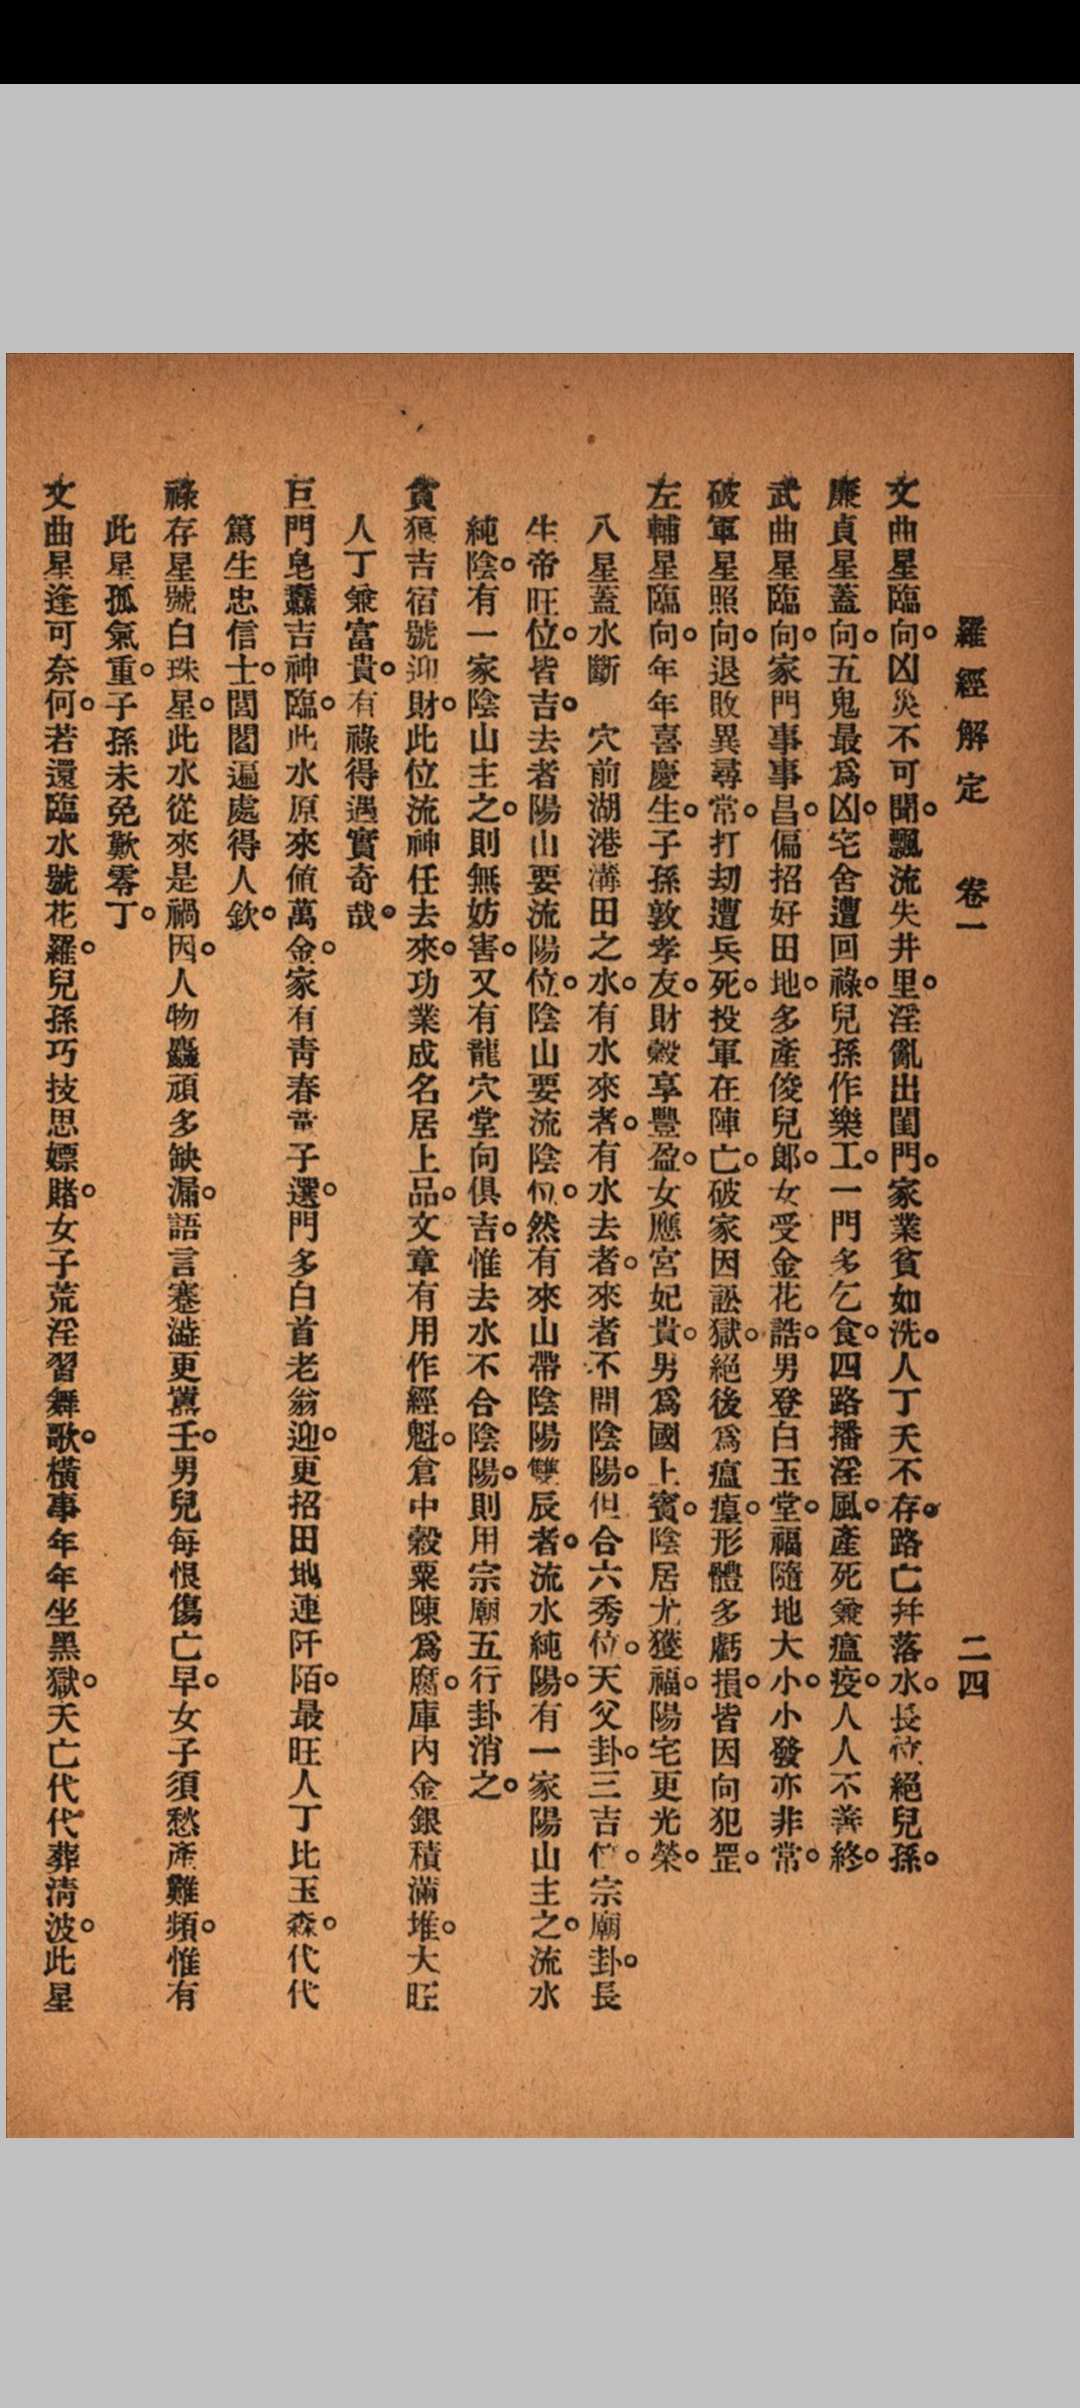 羅經解定　卷一　二四
文曲星臨向。凶災不可聞。飄流失井里。淫亂出閨門。家業貧如洗。人丁夭不存。路亡幷落水。長位絕兒孫。
廉貞星蓋向。五鬼最爲凶。宅舍遭回祿。兒孫作樂工。一門多乞食。四路播淫風。產死兼瘟疫。人人不善終。
武曲星臨向。家門事事昌。偏招好田地。多產俊兒郎。女受金花誥。男登白玉堂。福隨地大小。小發亦非常。
破軍星照向。退敗異尋常。打刧遭兵死。投軍在陣亡。破家因訟獄。絕後爲瘟㾮。形體多虧損。皆因向犯罡。
左輔星臨向。年年喜慶生。子孫敦孝友。財穀享豐盈。女應宮妃貴。男爲國上賓。陰居尤獲福。陽宅更光榮。
八星蓋水斷　穴前湖港溝田之水。有水來者。有水去者。來者不問陰陽。但合六秀位。天父卦。三吉位。宗廟卦。長
生帝旺位。皆吉。去者陽山要流陽位。陰山要流陰位。然有來山帶陰陽雙辰者。流水純陽。有一家陽山主之。流水
純陰。有一家陰山主之。則無妨害。又有龍穴堂向俱吉。惟去水不合陰陽。則用宗廟五行卦消之。
貪狼吉宿號迎財。此位流神任去來。功業成名居上品。文章有用作經魁。倉中穀粟陳爲腐。庫內金銀積滿堆。大旺
人丁兼富貴。有祿得遇實奇哉。
巨門皂纛吉神臨。此水原來値萬金。家有靑春童子選。門多白首老翁迎。更招田地連阡陌。最旺人丁比玉森。代代
篤生忠信士。閭閻遍處得人欽。
祿存星號白珠星。此水從來是禍因。人物麤頑多缺漏。語言蹇澁更嚚壬。男兒每恨傷亡早。女子須愁產難頻。惟有
此星孤氣重。子孫未免歎零丁。
文曲星逢可奈何。若還臨水號花羅。兒孫巧技思嫖賭。女子荒淫習舞歌。橫事年年坐黑獄。夭亡代代葬淸波。此星